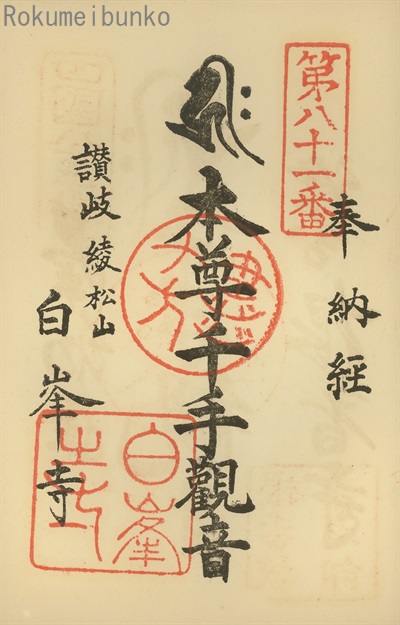 Rokumeibunko
第八十一番
奉納経
本尊千手觀音
讃岐 綾松山
白峯寺
白峯